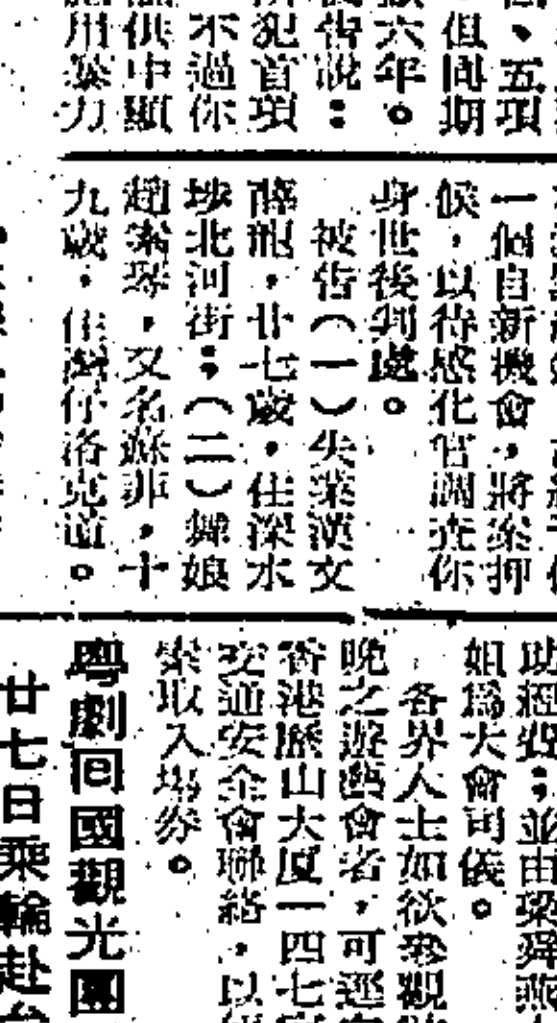 、五項
但同期
六年。
告說：
犯首項
不過你
供中顯
用暴力
一個自新機會，將案押
候，以待感化官調查你
身世後判處。
被告（一）失業漢文
龍，廿七歲，住深水
埗北河街；（二）舞娘
趙潔琴，又名蘇菲，十
九歲，住灣仔洛克道。
並由梁舜燕
姐為大會司儀。
各界人士如欲參觀
晚之遊藝會者，可逕
香港歷山大厦一四七
交通安全會聯絡，以
索取入場券。
粵劇回國觀光團
廿七日乘輪赴台